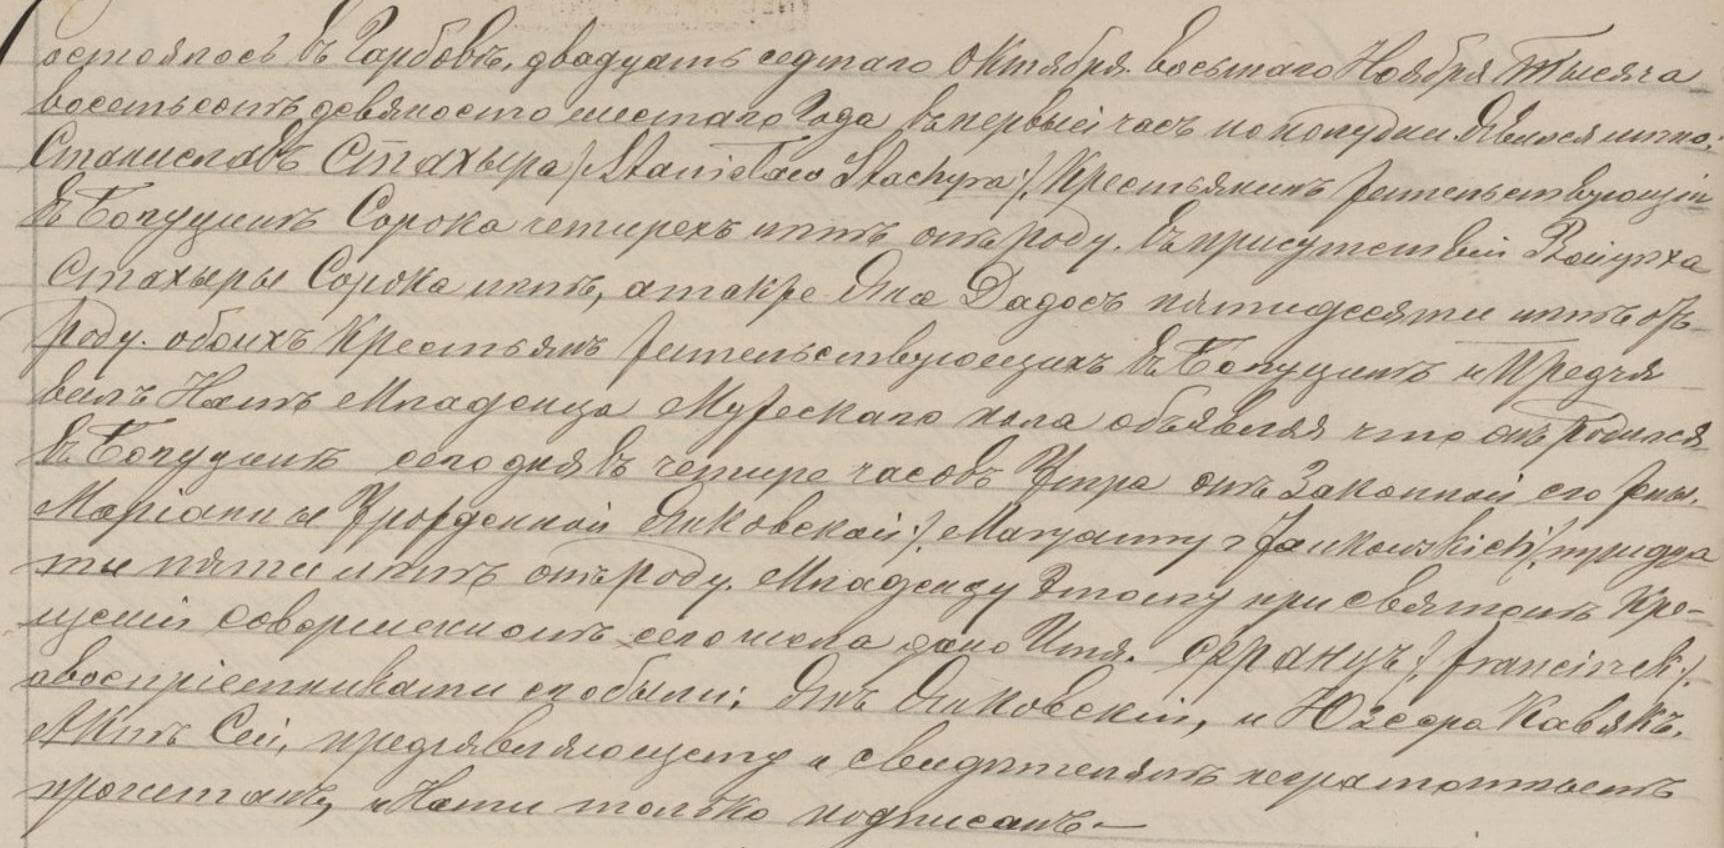 остоялось въ Гарбовѣ, двадцать седмаго Октября. восьмаго Ноября Тысяча
восемьсотъ девяносто шестаго Года въ первый часъ по полудни Явился лично:
Станиславъ Стахыра /: Stanisław Stachyra :/ Крестьянинъ жительствующій
въ Богуцинѣ Сорока четирехъ лѣтъ отъ роду. въ присутствіи Войцѣха
Стахыры Сорока лѣтъ, а также Яна Дадосъ пятидесяти лѣтъ отъ
роду. обоихъ Крестьянъ жительствующихъ въ Богуцинѣ и Предъя
вилъ Намъ Младенца Мужескаго пола объявляя что онъ родился
въ Богуцинѣ сегодня въ четире часовъ Утра отъ Законной его жены.
Маріанны Урожденной Янковской /: Maryanny z Jankowskich :/ тридца
ти пяти лѣтъ отъ роду. Младенцу Этому при святомъ Кре-
щеніи совершенномъ сего числа дано Имя. Францъ /: Franciszek :/.
а воспріемниками его были: Янъ Янковскій, и Юзефа Кавякъ.
Актъ Сей, предъявляющему и свидѣтелямъ неграмотнымъ
прочетанъ, и Нами только подписанъ.—